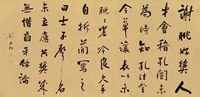 謝朓好獎人
會稽孔闓
為時知孔珪嘗
令草讓表以示
朓嗟吟良久手
自折簡寫之
曰士子聲名
未立應共獎成
無惜齒牙餘論